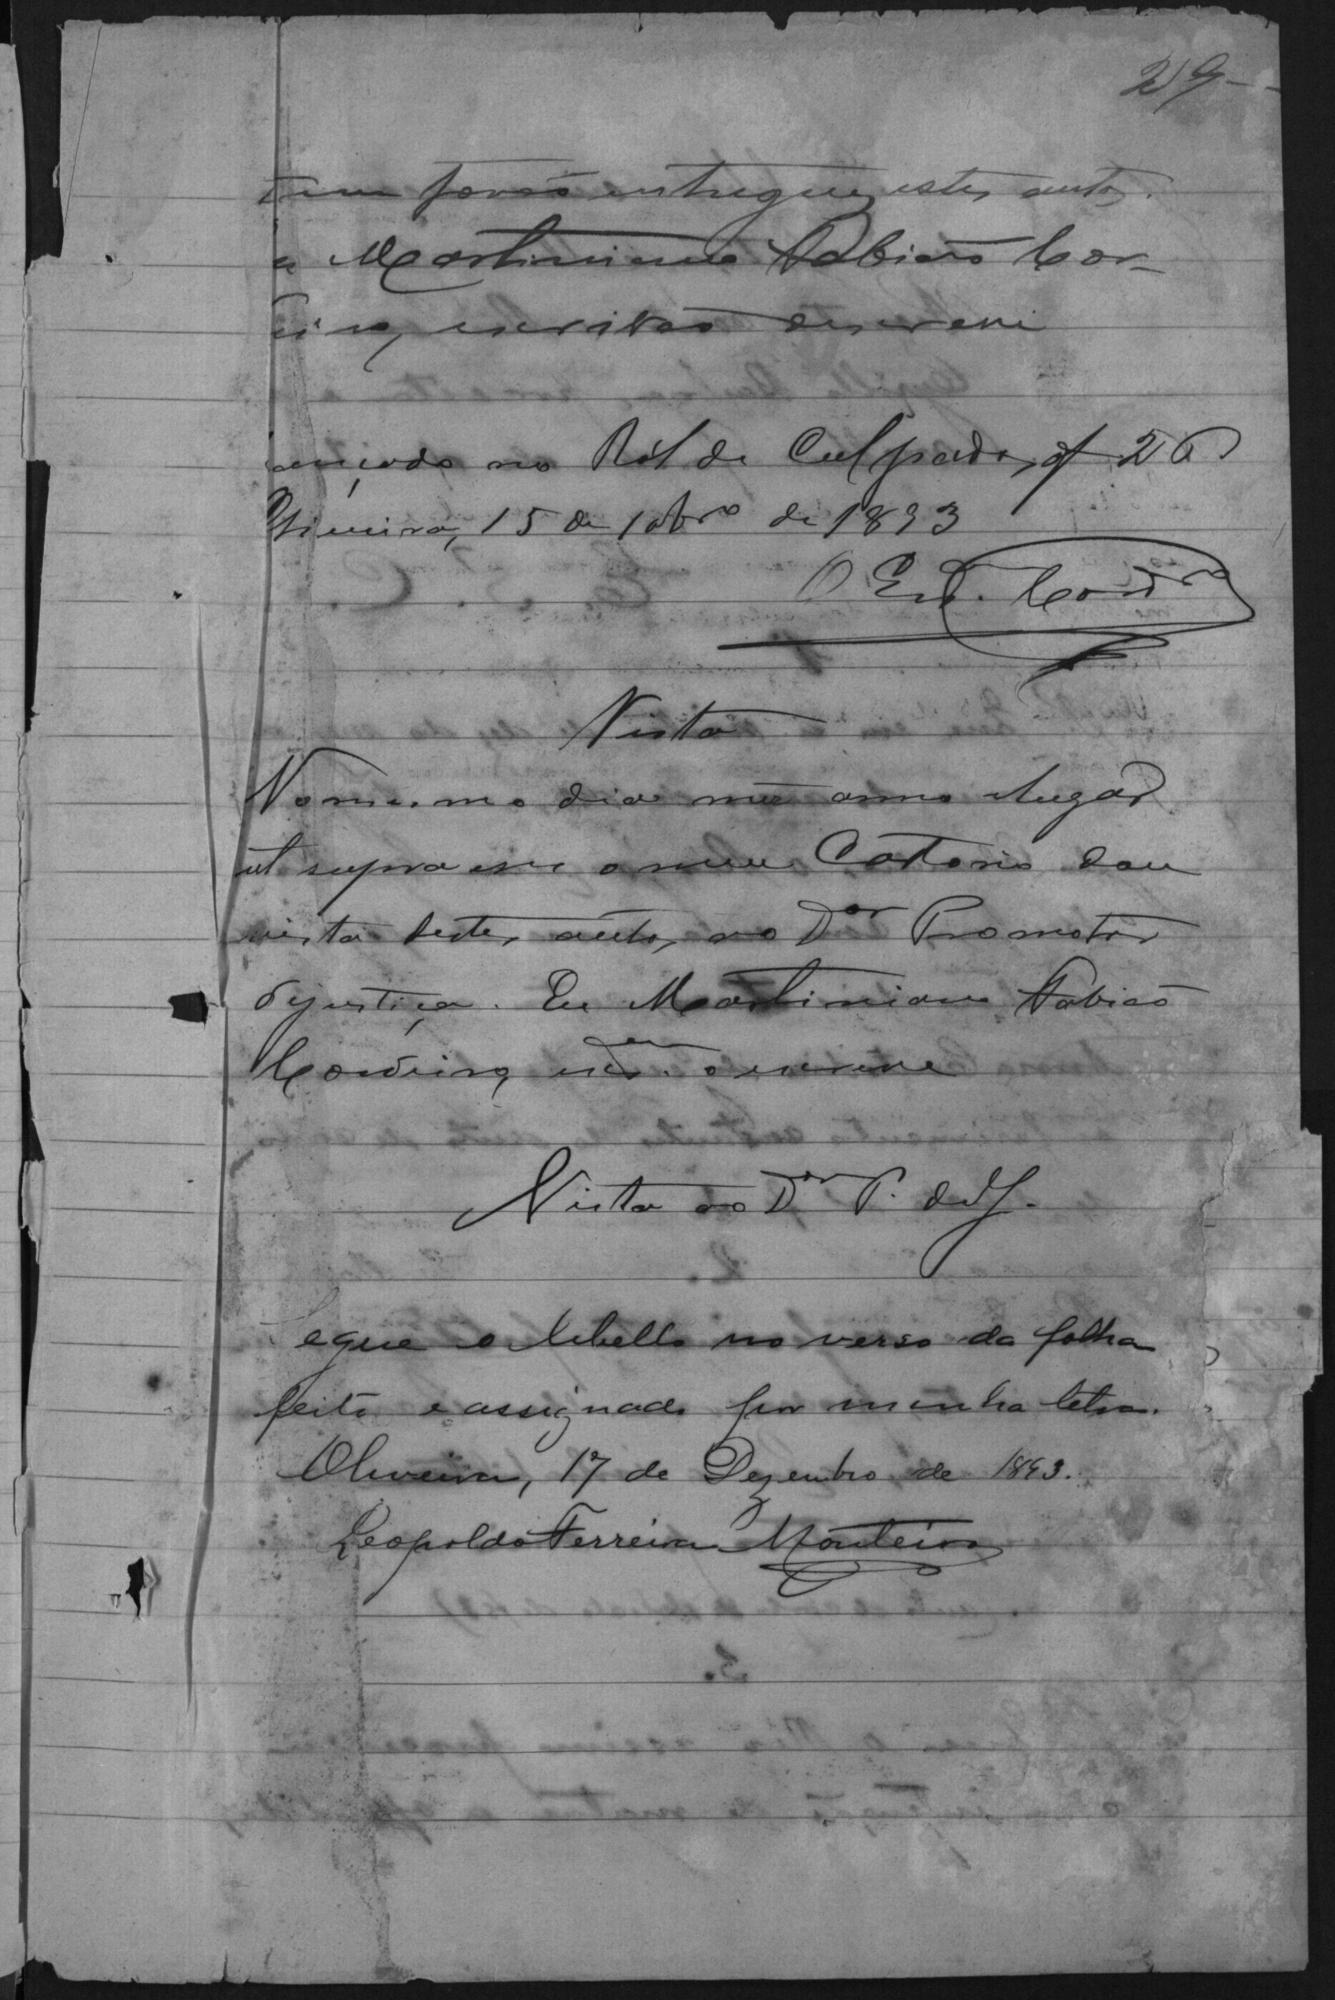 29
tem forão entregues estes autos.
a Martiniano Fabiano Cor-
eiro, escrivão escrevi
ançado no Ról de Culpados, of 26
Oliveira, 15 de 10brº de 1893
O Esc. Cordrº
Vista
No mesmo dia mes anno e lugar
ut supra em o meu Cartorio dou
vista destes autos ao Dor Promotor
de justiça. Eu Martiniano Fabiano
Cordeiro, escram o escrevi
Vista ao Dor P. de J.
egue o libello no verso da folha
feito e assignado por minha letra.
Oliveira, 17 de Dezembro de 1893.
Leopoldo Ferreira Monteiro